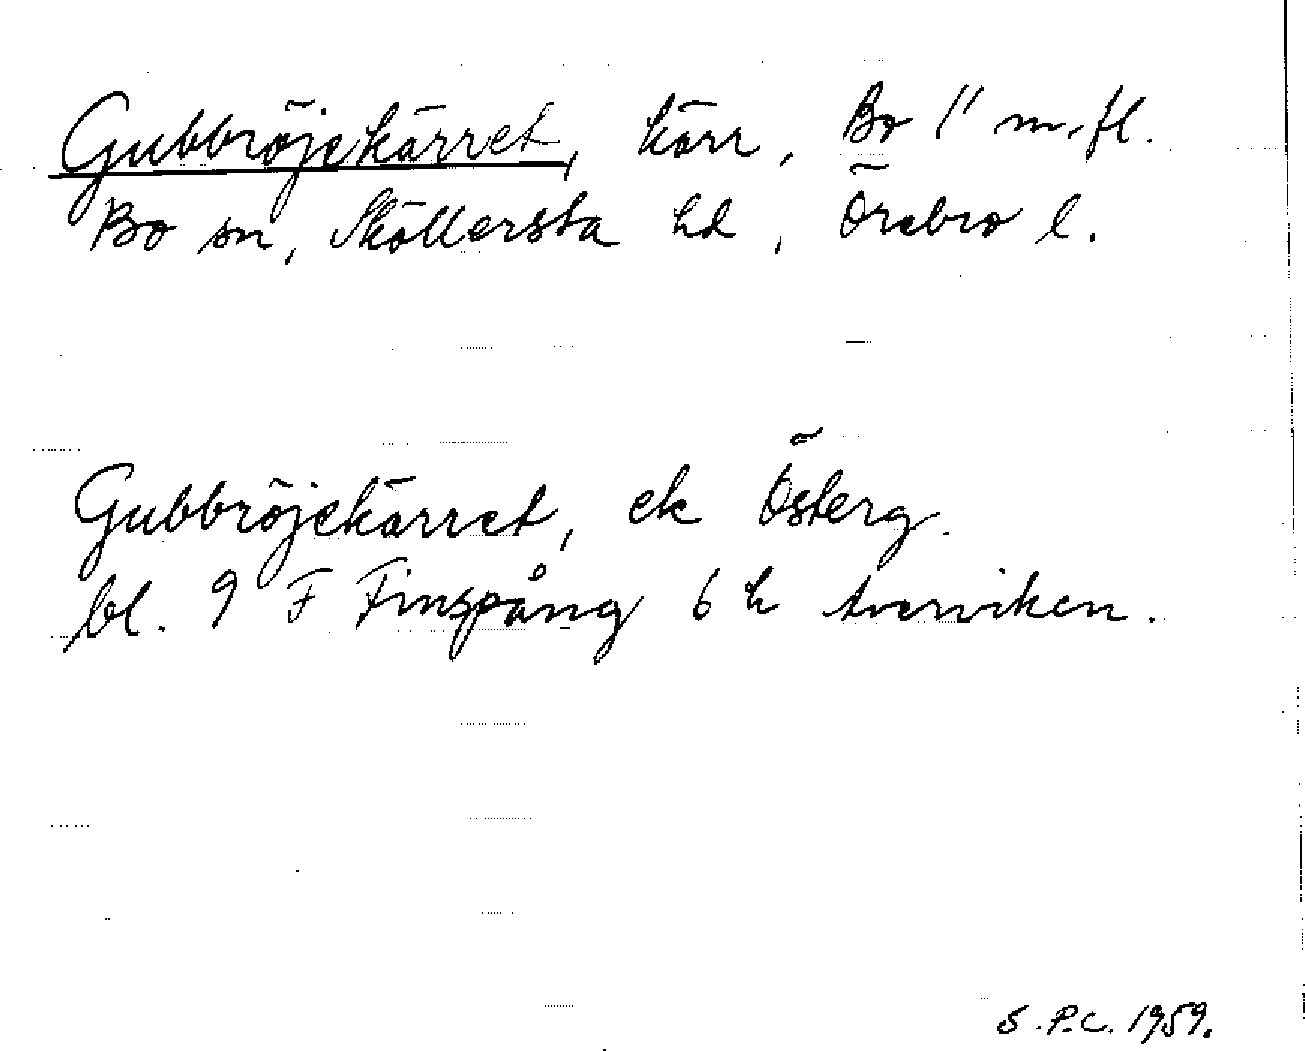 Gubbröjekärret, kärr, Bo 1" m.fl.
Bo sn, Sköllersta hd, Örebro l.
Gubbröjekärret, ek Österg.
bl. 9 F Finspång 6 h Avernviken.
S.P.C. 1959.